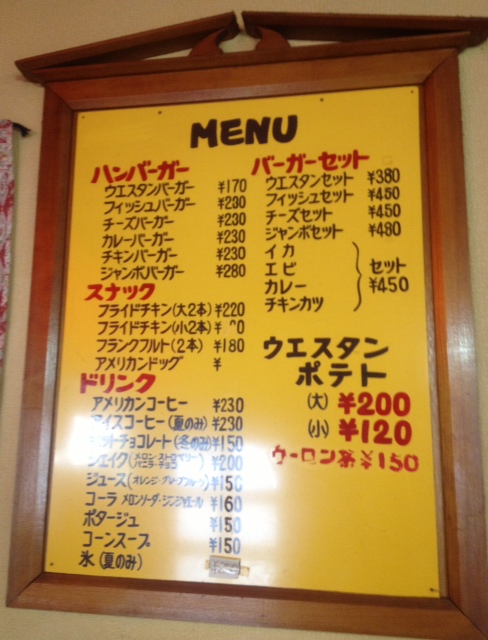 MENU
ハンバーガー
ウエスタンバーガー ¥170
フィッシュバーガー ¥230
チーズバーガー ¥230
カレーバーガー ¥230
チキンバーガー ¥230
ジャンボバーガー ¥280
スナック
フライドチキン(大2本) ¥220
フライドチキン(小2本) ¥
フランクフルト(2本) ¥180
アメリカンドッグ ¥
ドリンク
アメリカンコーヒー ¥230
アイスコーヒー(夏のみ) ¥230
ホットチョコレート(冬のみ) ¥150
シェイク(メロン・ストロベリー バニラ・チョコ) ¥200
ジュース(オレンジ・グレープフルーツ) ¥150
コーラ メロンソーダ・ジンジャエール ¥160
ポタージュ ¥150
コーンスープ ¥150
氷(夏のみ)
バーガーセット
ウエスタンセット ¥380
フィッシュセット ¥450
チーズセット ¥450
ジャンボセット ¥480
イカ
エビ
カレー
チキンカツ
セット
¥450
ウエスタン
ポテト
(大) ¥200
(小) ¥120
ウーロン茶 ¥150